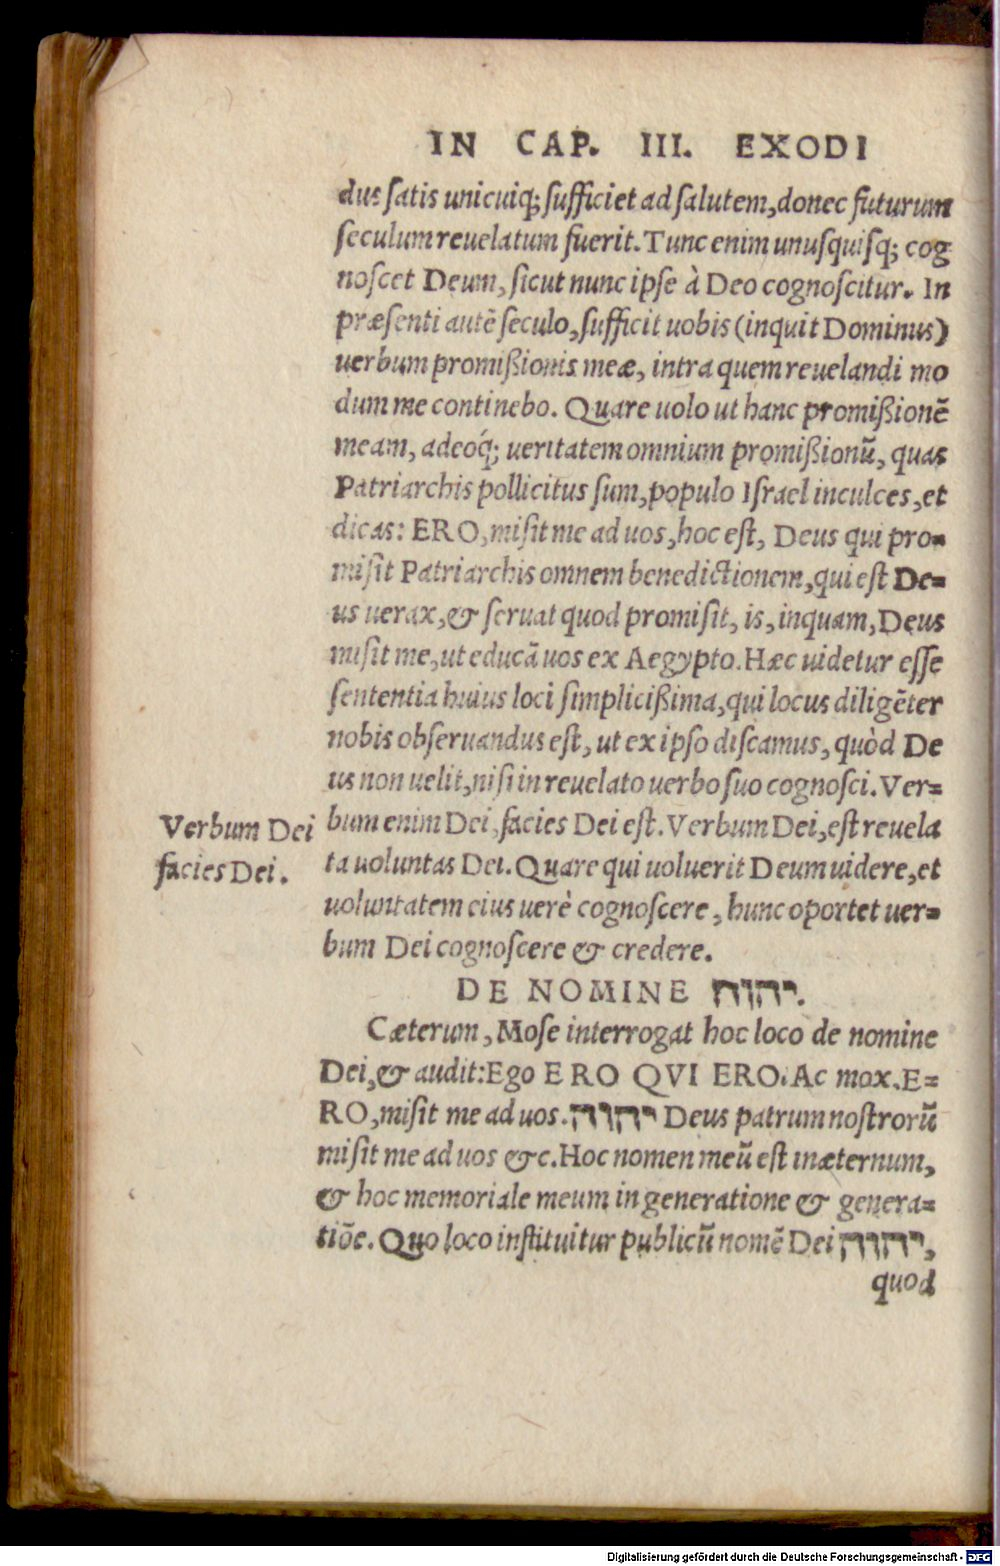 IN CAP. III. EXODI
dus satis unicuiq; sufficiet ad salutem, donec futurum
seculum reuelatum fuerit. Tunc enim unusquisq; cog
noscet Deum, sicut nunc ipse à Deo cognoscitur. In
præsenti autē seculo, sufficit uobis (inquit Dominus)
uerbum promißionis meæ, intra quem reuelandi mo
dum me continebo. Quare uolo ut hanc promißionē
meam, adeoq́; ueritatem omnium promißionū, quas
Patriarchis pollicitus sum, populo Israel inculces, et
dicas: ERO, misit me ad uos, hoc est, Deus qui pro=
misit Patriarchis omnem benedictionem, qui est De=
us uerax, & seruat quod promisit, is, inquam, Deus
misit me, ut educā uos ex Aegypto. Hæc uidetur esse
sententia huius loci simplicißima, qui locus diligēter
nobis obseruandus est, ut ex ipso discamus, quòd De
us non uelit, nisi in reuelato uerbo suo cognosci. Ver=
Verbum Dei
facies Dei.
bum enim Dei, facies Dei est. Verbum Dei, est reuela
ta uoluntas Dei. Quare qui uoluerit Deum uidere, et
uoluntatem eius uerè cognoscere, hunc oportet uer=
bum Dei cognoscere & credere.
DE NOMINE יהוה.
Cæterum, Mose interrogat hoc loco de nomine
Dei, & audit: Ego ERO QVI ERO. Ac mox. E=
RO, misit me ad uos. יהוה Deus patrum nostrorū
misit me ad uos &c. Hoc nomen meū est in æternum,
& hoc memoriale meum in generatione & genera=
tiōe. Quo loco instituitur publicū nomē Dei יהוה,
quod
Digitalisierung gefördert durch die Deutsche Forschungsgemeinschaft - DFG